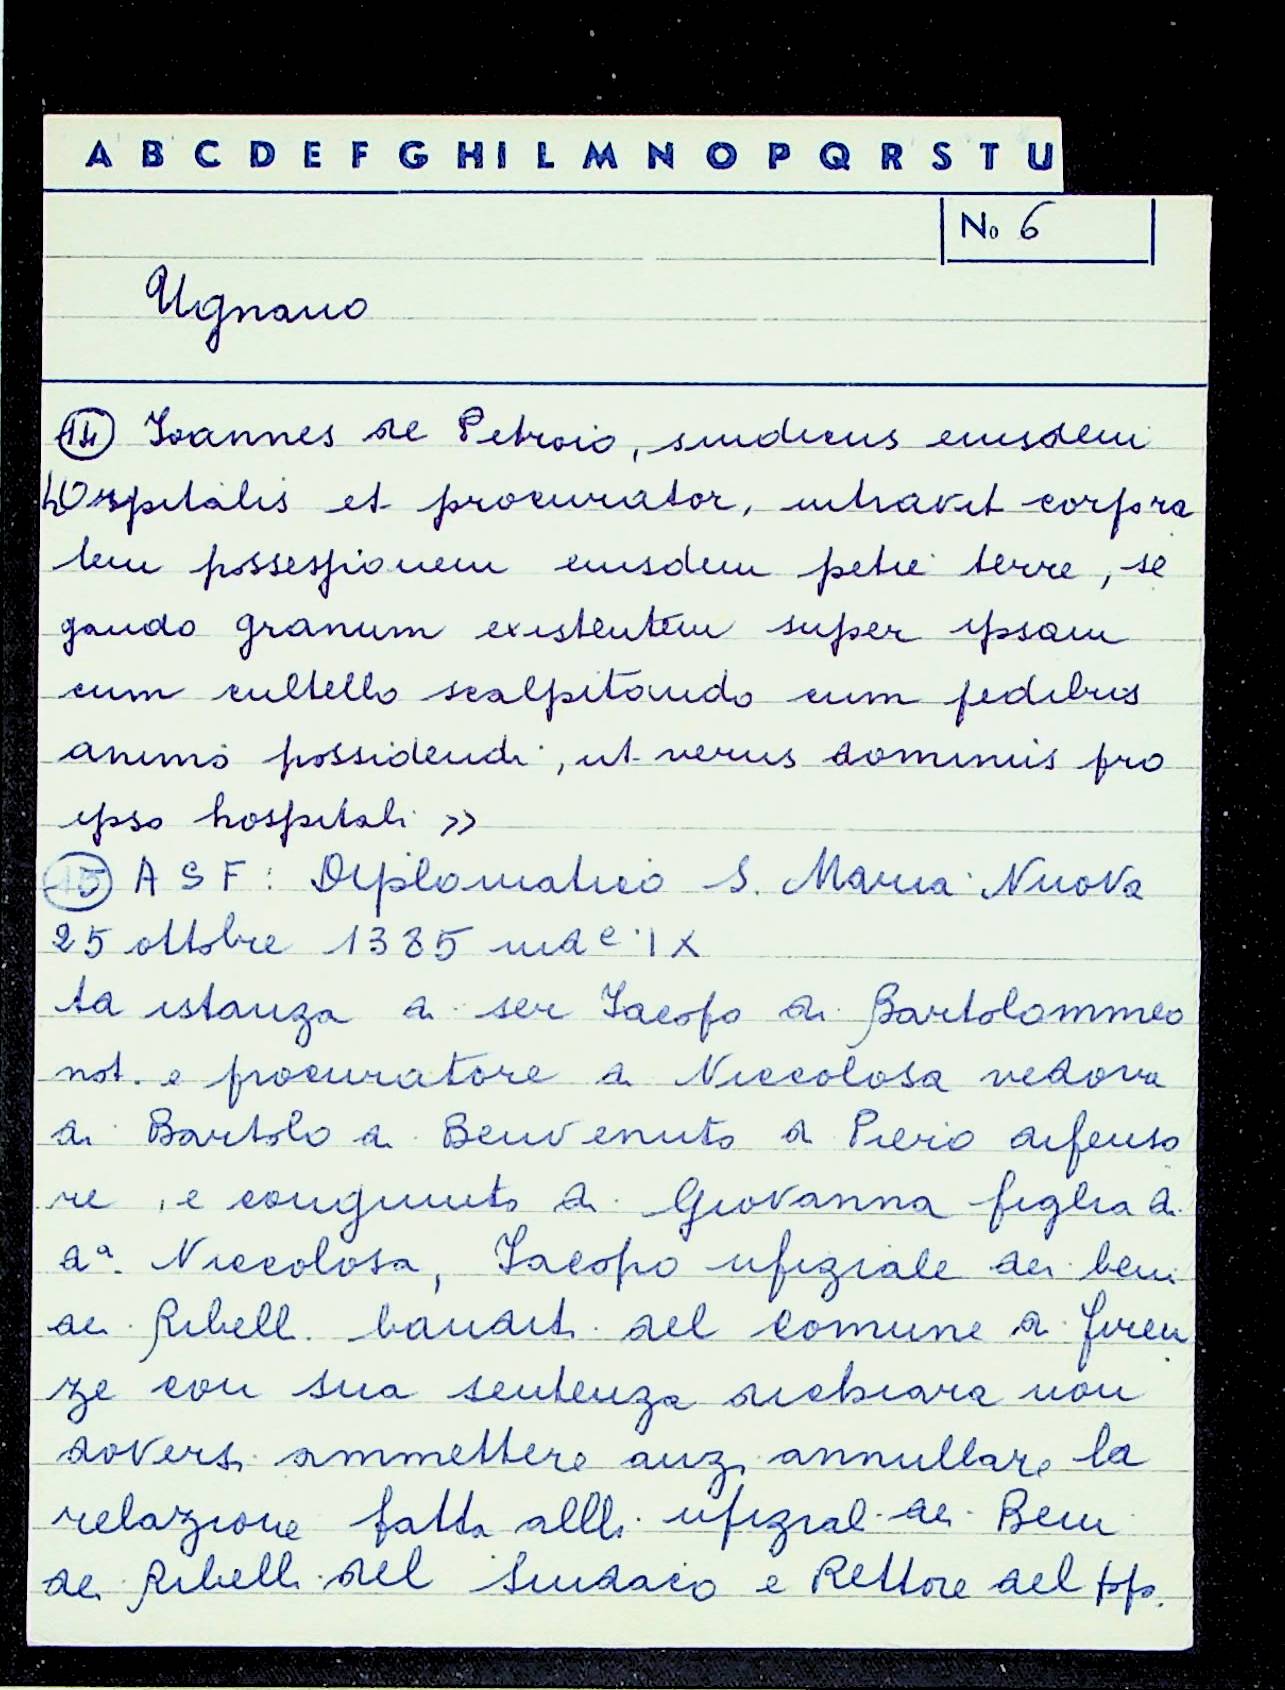 A B C D E F G H I L M N O P Q R S T U
No 6
Ugnano
14 Ioannes de Petroio, sindicus eiusdem
hospitalis et procurator, intravit corpora
lem possessionem eiusdem petie terre, se
gando granum existentem super ipsam
cum cultello scalpitando cum pedibus
animo possidendi, ut verus dominus pro
ipso hospitali »
15 A S F: Diplomatico S. Maria Nuova
25 ottobre 1385 indᵉ IX
ta istanza di ser Iacopo di Bartolommeo
not. e procuratore di Niccolosa vedova
di Bartolo di Benvenuto di Piero difenso
re, e congiunto di Giovanna figlia di
dᵃ. Niccolosa, Iacopo ufiziale dei beni
dei Ribelli banditi del Comune di Firen
ze con sua sentenza dichiara non
doversi ammettere anzi annullare la
relazione fatta alli ufizial dei Beni
dei Ribelli del Sindaco e Rettore del pop.